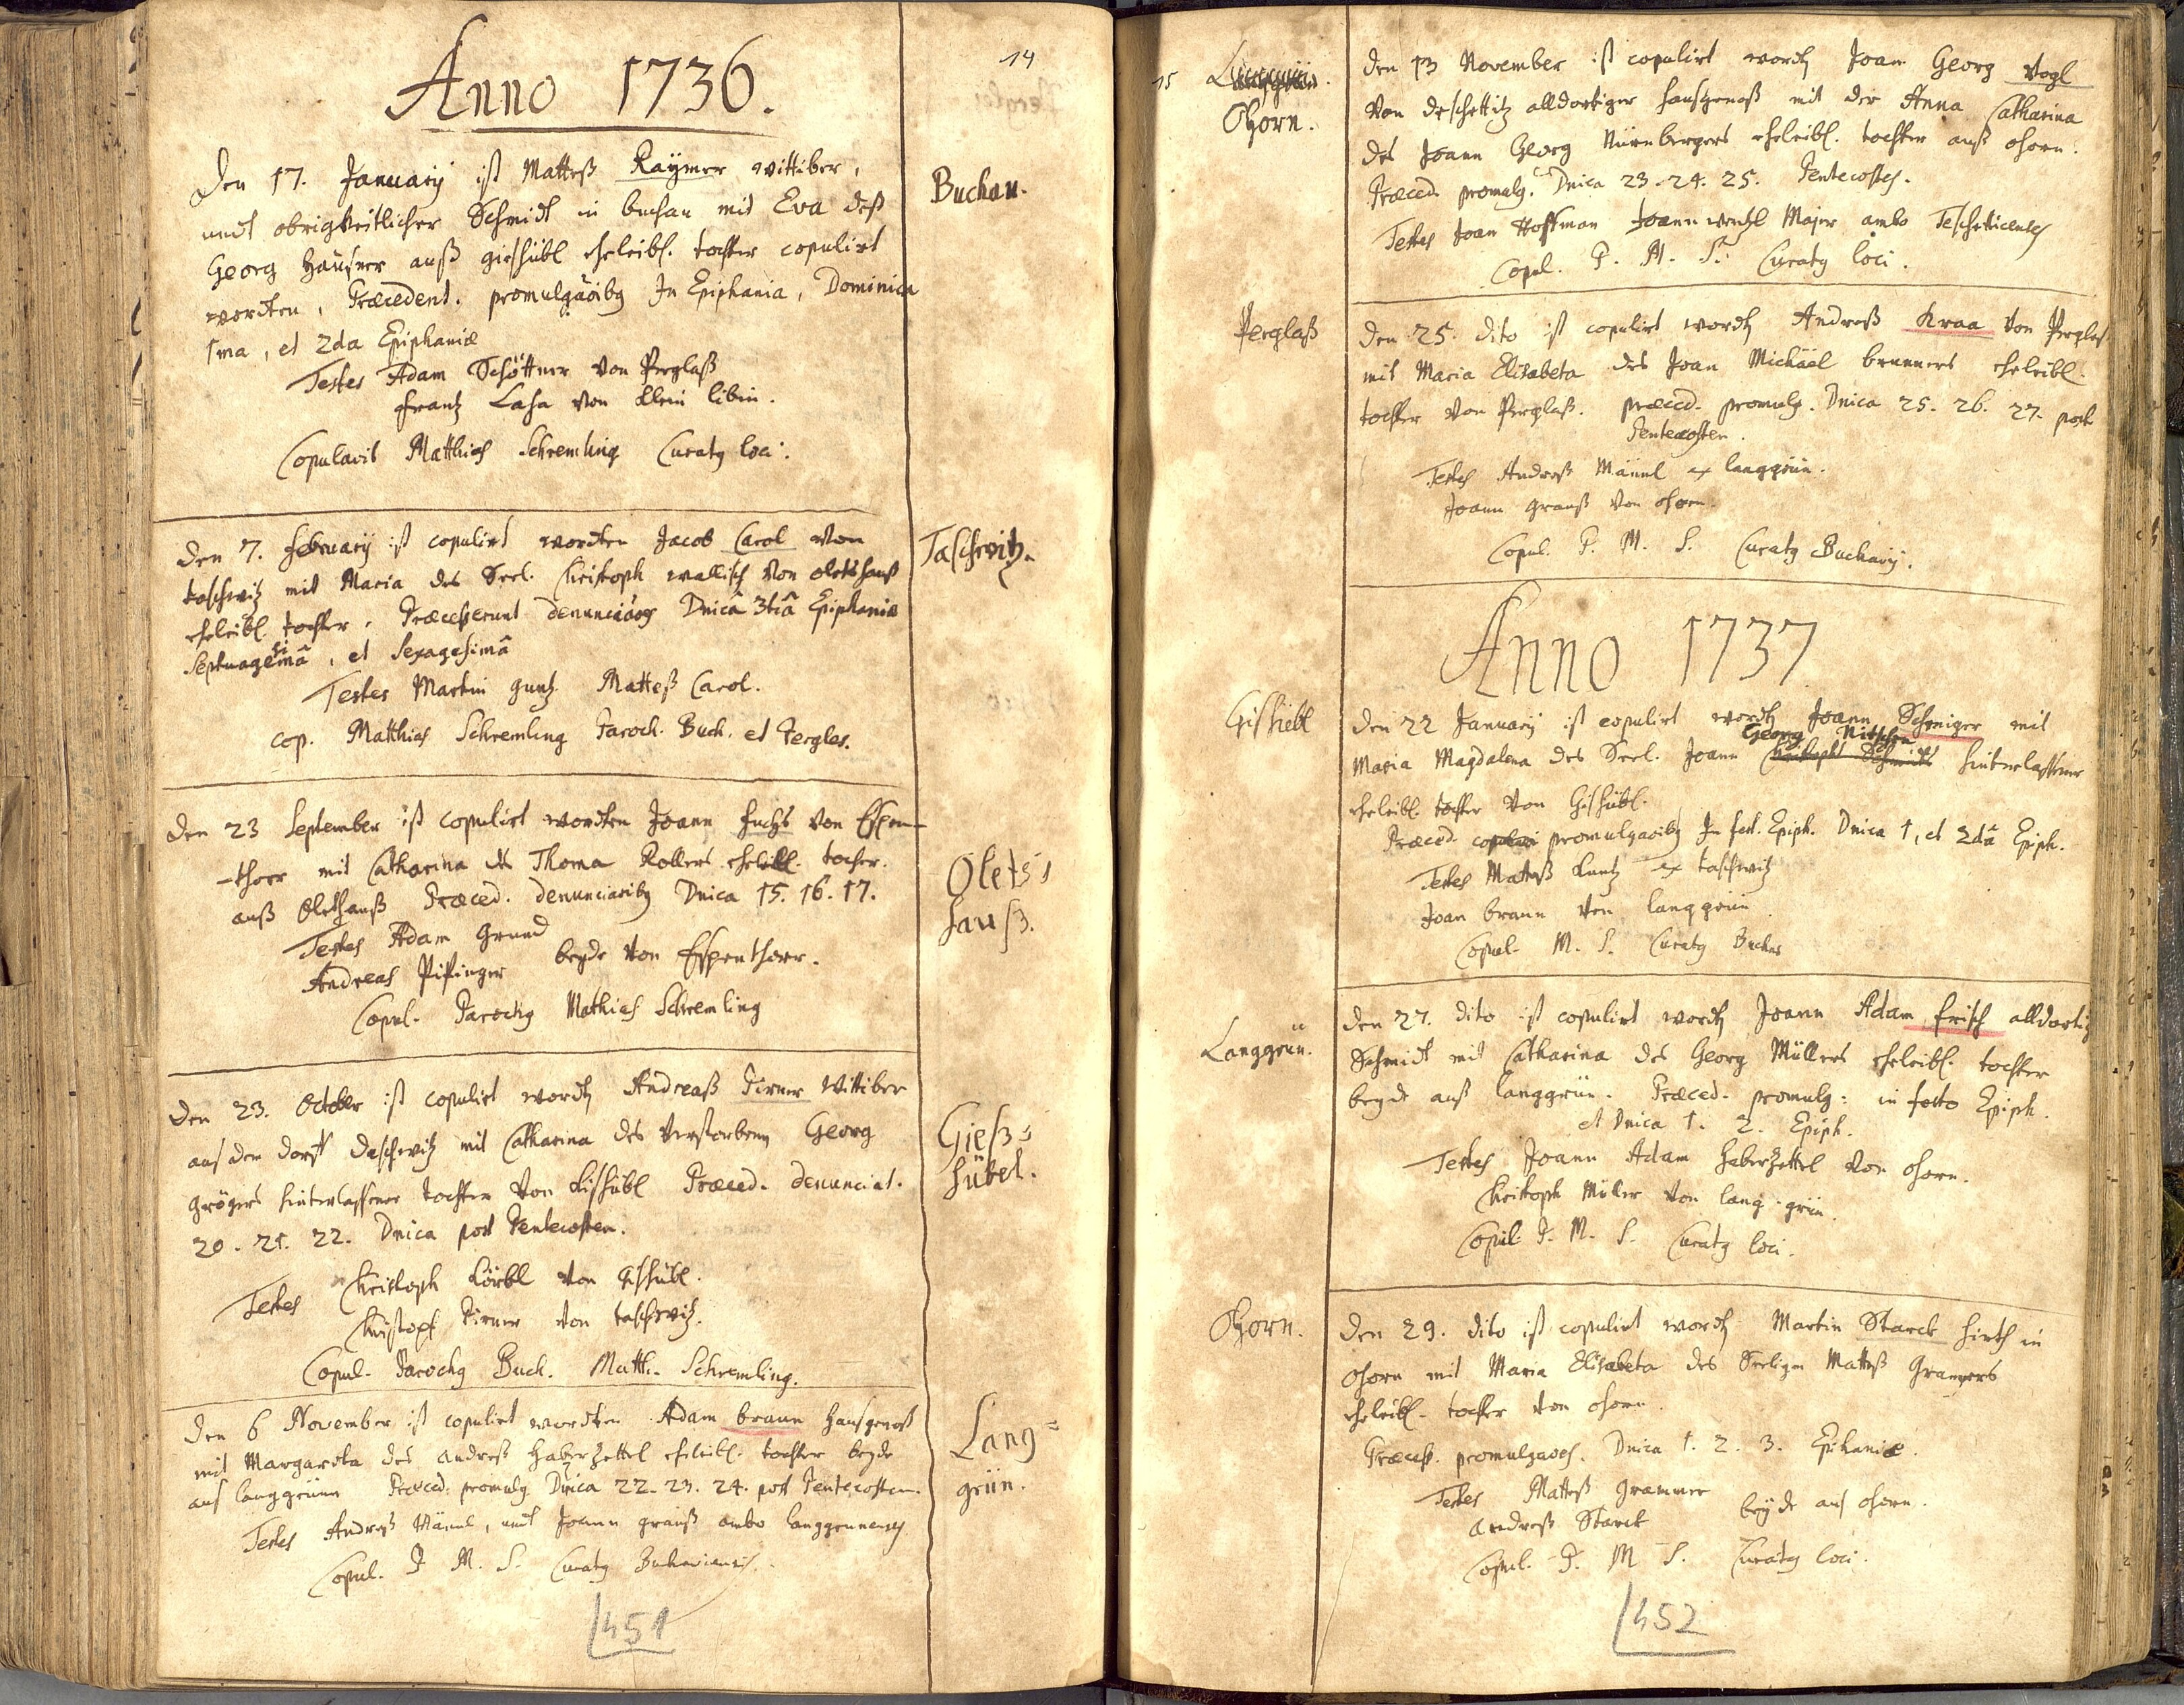 14
Anno 1736.
Buchau.
Den 17. Januarij ist Matteß Raÿmer wittiber,
undt obrigkeitlicher Schmidt in buchau mit Eva deß
Georg Haußner auß gieshübl eheleibl. tochter copulirt
worden, Præcedent. promulgaõibg In Epiphania, Dominica
1ma, et 2da Epiphaniæ
Testes Adam Schöttner von Perglaß
Frantz Lasa von Klein libin.
Copulavit Matthias Schremling Curatg loci.
Taschwitz.
Den 7. februarij ist copulirt wordten Jacob Carol von
taschwitz mit Maria des Seel. Christoph wallisch von oletshauß
eheleibl. tochter. Præcesserunt denunciãões Dnicâ 3tiâ Epiphaniæ
Septuagesimâ, et Sexagesimâ
Testes Martin guntz. Matteß Carol.
cop. Matthias Schremling Paroch. Buch. et Pergles.
Olets=
hauß.
Den 23 September ist copulirt wordten Joann fuchs von Espen-
-thorr mit Catharina des Thoma Kollers eheleibl. tochter.
auß Oletshauß Præced. denunciaõibg Dnica 15. 16. 17.
Testes Adam Grund
Andreas Pißinger beyde von Espenthorr.
Copul. Parochg Mathias Schremling
Gieß=
hübel.
Den 23. October ist copulirt wordtn Andreaß Pirner Wittiber
aus dem dorf daschwitz mit Catharina des verstorbenen Georg
grögers hinterlassener tochter von Gishübl Præced. denunciat.
20. 21. 22. Dnica post Pentecosten.
Testes Christoph Körbl von Gishübl.
Christoph Pirner von taschwitz.
Copul. Parochg Buch. Matth. Schremling.
Lang=
grün.
Den 6 November ist copulirt wordten Adam braun haußgenoß
mit Margareta des andreß Haberzettel eheleibl. tochter beyde
aus langgrünn Præced. promulg. Dnica 22. 23. 24. post Pentecosten.
Testes Andreß Männl, undt Joann grauß ambo langgrunenses
Copul. P. M. S. Curatg Buchaviensis.
451
15
Langgrün.
Ohorn.
Den 13 November ist copulirt wordtn Joan Georg Vogl
von deschettitz alldortiger haußgenoß mit der Anna Catharina
des Joann Georg Nürnbergers eheleibl. tochter auß ohorn.
Præced. promulg. Dnica 23. 24. 25. Pentecostes.
Testes Joan Hoffman Joann wentzl Majer ambo Teschetticenses
Copul. P. M. S. Curatg loci.
Perglaß
Den 25. dito ist copulirt wordtn Andreß Kraa von Perglaß
mit Maria Elisabeta des Joan Michäel brunners eheleibl.
tochter von Perglaß. præced. promulg. Dnica 25. 26. 27. post
Pentecosten.
Testes Andreß Männl ex langgrün.
Joann grauß von ohorn.
Copul. P. M. S. Curatg Buchavij.
Anno 1737
Gishiebl
Den 22 Januarij ist copulirt wordtn Joann Schmiger mit
Georg Nitschen
Maria Magdalena des Seel. Joann Christoph Schmidts hinterlassener
eheleibl. tochter von Gishübl.
Præced. copulai promulgaoibg In fest. Epiph. Dnica 1, et 2dâ Epiph.
Testes Matteß Kuntz ex taschwitz
Joan braun von langgrün
Copul. M. S. Curatg Buchav
Langgrün.
Den 27. dito ist copulirt wordtn Joann Adam frisch alldortig
Schmidt mit Catharina des Georg Müllers eheleibl. tochter
beyde auß langgrün. Præced. promulg: in festo Epiph.
et Dnica 1. 2. Epiph.
Testes Joann Adam Haberzettel von ohorn.
Christoph Müller von lang-grün.
Copul. P. M. S. Curatg loci.
Ohorn.
Den 29. dito ist copulirt wordtn Martin Starck hirth in
ohorn mit Maria Elisabeta des Seeligen Matteß Gramers
eheleibl. tochter von ohorn.
Præcess. promulgaoes. Dnica 1. 2. 3. Ephaniæ.
Testes Matteß Grammer
andreß Starck beyde aus ohorn.
Copul. P. M S. Curatg loci.
452